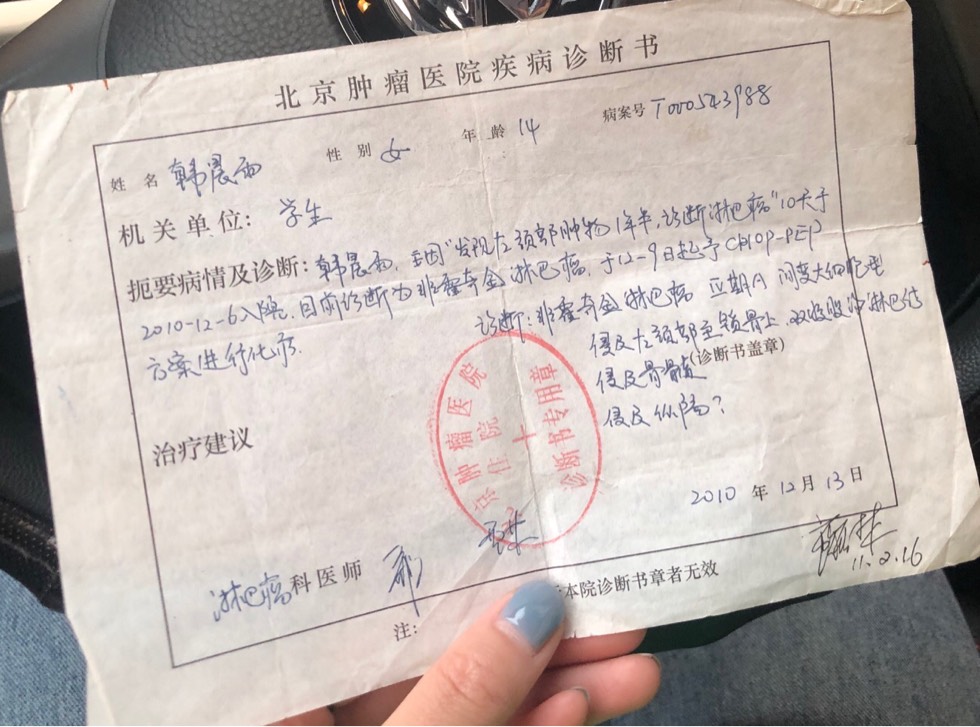 北京肿瘤医院疾病诊断书
姓名 韩晨雨 性别 女 年龄 14 病案号 T000543988
机关单位: 学生
扼要病情及诊断: 韩晨雨, 主因"发现左颈部肿物1年半,诊断淋巴瘤"10天于
2010-12-6入院. 目前诊断为非霍奇金淋巴瘤, 于12-9日起予CHOP-PEP
方案进行化疗.
诊断: 非霍奇金淋巴瘤 A 间变大细胞型
侵及左颈部至锁骨上, 双 淋巴结
(诊断书盖章)
侵及骨髓
侵及纵隔?
北京肿瘤医院
住院
诊断书专用章
治疗建议
2010 年 12 月 13 日
淋巴瘤科医师
11.2.16
注: 本院诊断书章者无效